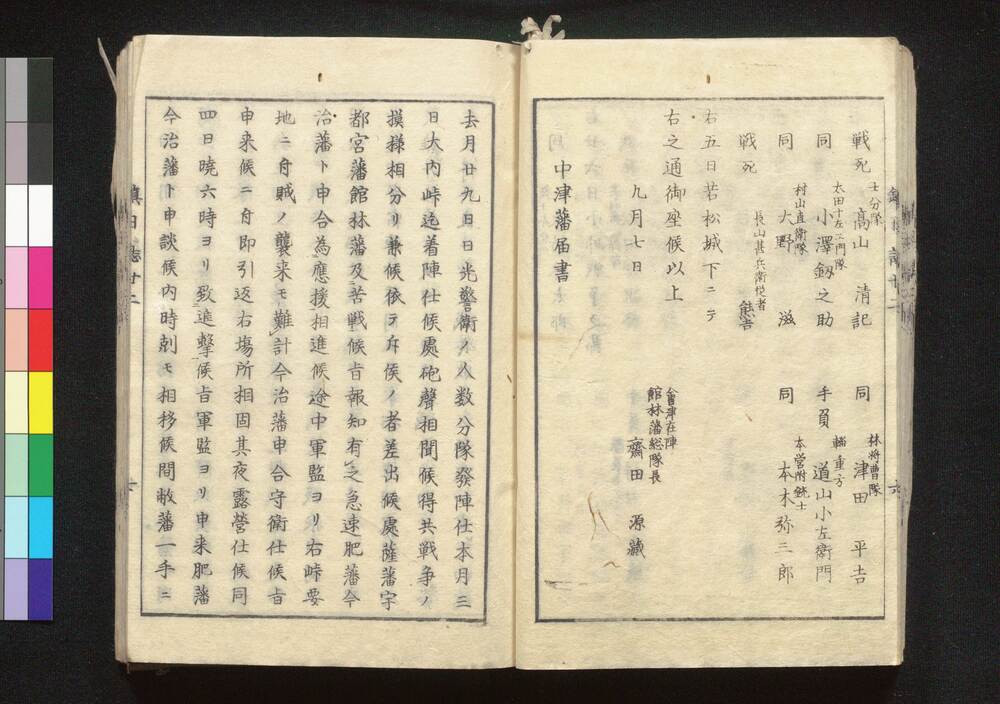 士分隊
戦死 高山清記
林将曹隊
同 津田平吉
太田十左衛門隊
同 小澤釼之助
輜重方
手負 道山小左衛門
村山直衛隊
同 大野滋
本営附銃士
同 本木弥三郎
長山甚兵衛従者
戦死 熊吉
右五日若松城下ニテ
右之通御座候以上
九月七日
會津在陣
館林藩総隊長
齋田源藏
中津藩届書
去月廿九日日光警衛ノ人数分隊發陣仕本月三
日大内峠迄着陣仕候處砲聲相聞候得共戦争ノ
摸様相分リ兼候依テ斥候ノ者差出候處薩藩宇
都宮藩館林藩及苦戦候旨報知有之急速肥藩今
治藩ト申合為應援相進候途中軍監ヨリ右峠要
地ニ付賊ノ襲来モ難計今治藩申合守衛仕候旨
申来候ニ付即引返右場所相固其夜露營仕候同
四日曉六時ヨリ致進撃候旨軍監ヨリ申来肥藩
今治藩ト申談候内時剋モ相移候間敝藩一手ニ